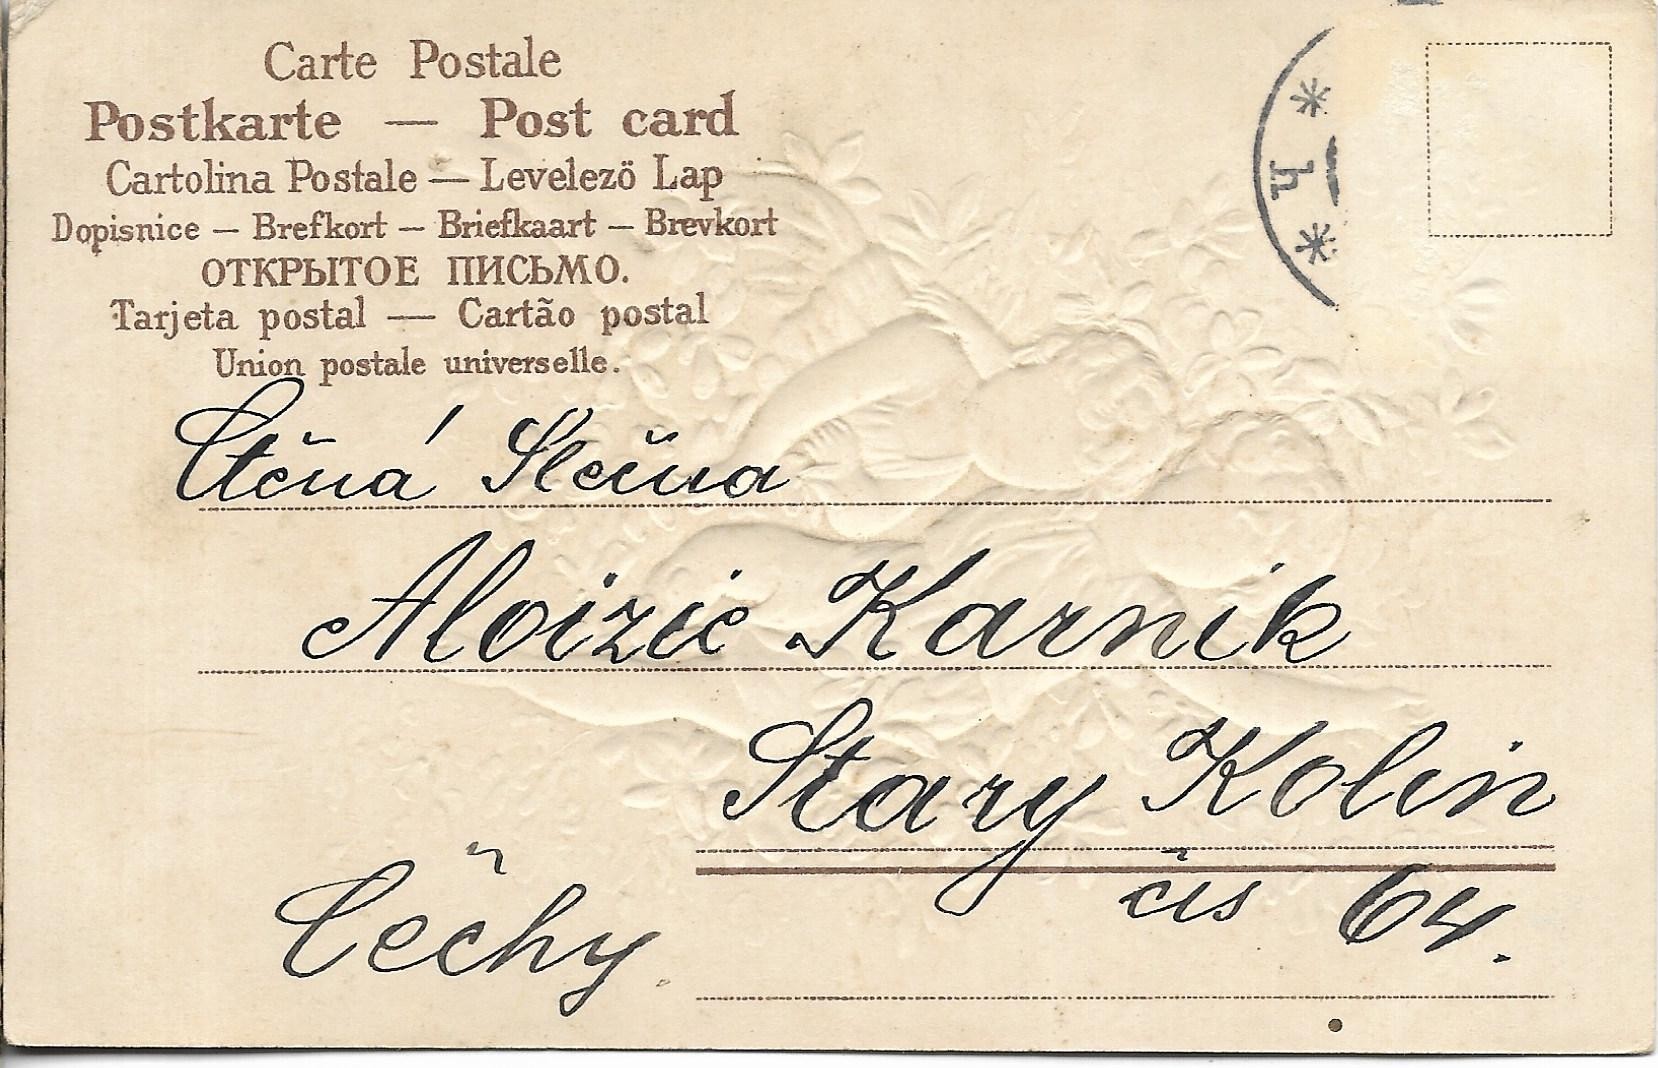 Carte Postale
Postkarte — Post card
Cartolina Postale — Levelezö Lap
Dopisnice — Brefkort — Briefkaart — Brevkort
ОТКРЫТОЕ ПИСЬМО.
Tarjeta postal — Cartão postal
Union postale universelle.
* h *
Ctěná Slečna
Aloizie Karnik
Stary Kolin
čis 64.
Čechy